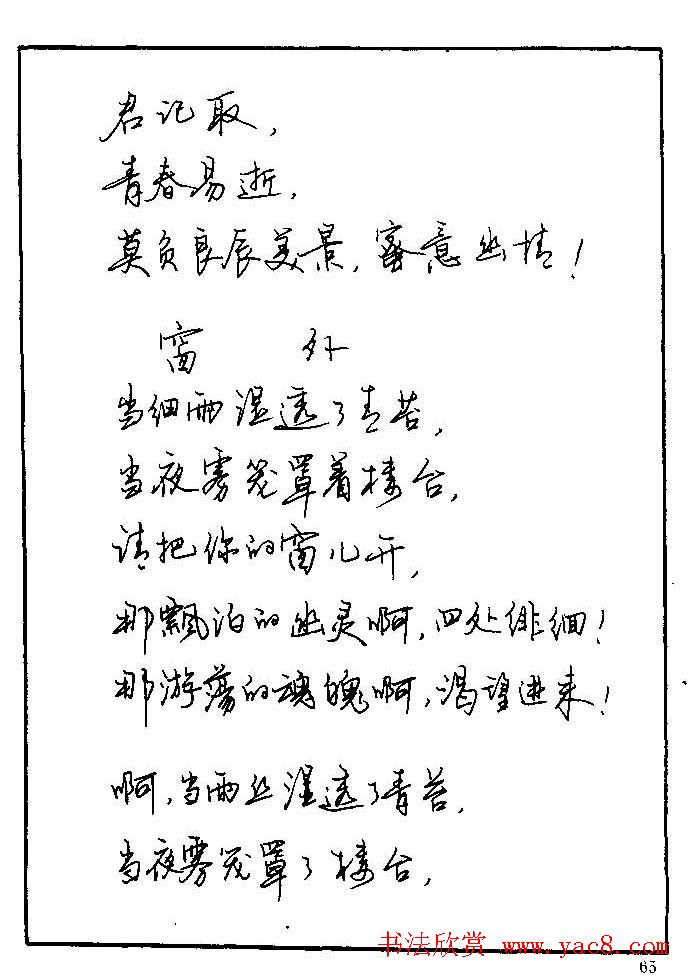 君记取，
青春易逝，
莫负良辰美景，蜜意幽情！
窗 外
当细雨湿透了青苔，
当夜雾笼罩着楼台，
请把你的窗儿开，
那飘泊的幽灵啊，四处徘徊！
那游荡的魂魄啊，渴望进来！
啊，当雨丝湿透了青苔，
当夜雾笼罩了楼台，
书法欣赏 www.yac8.com
65